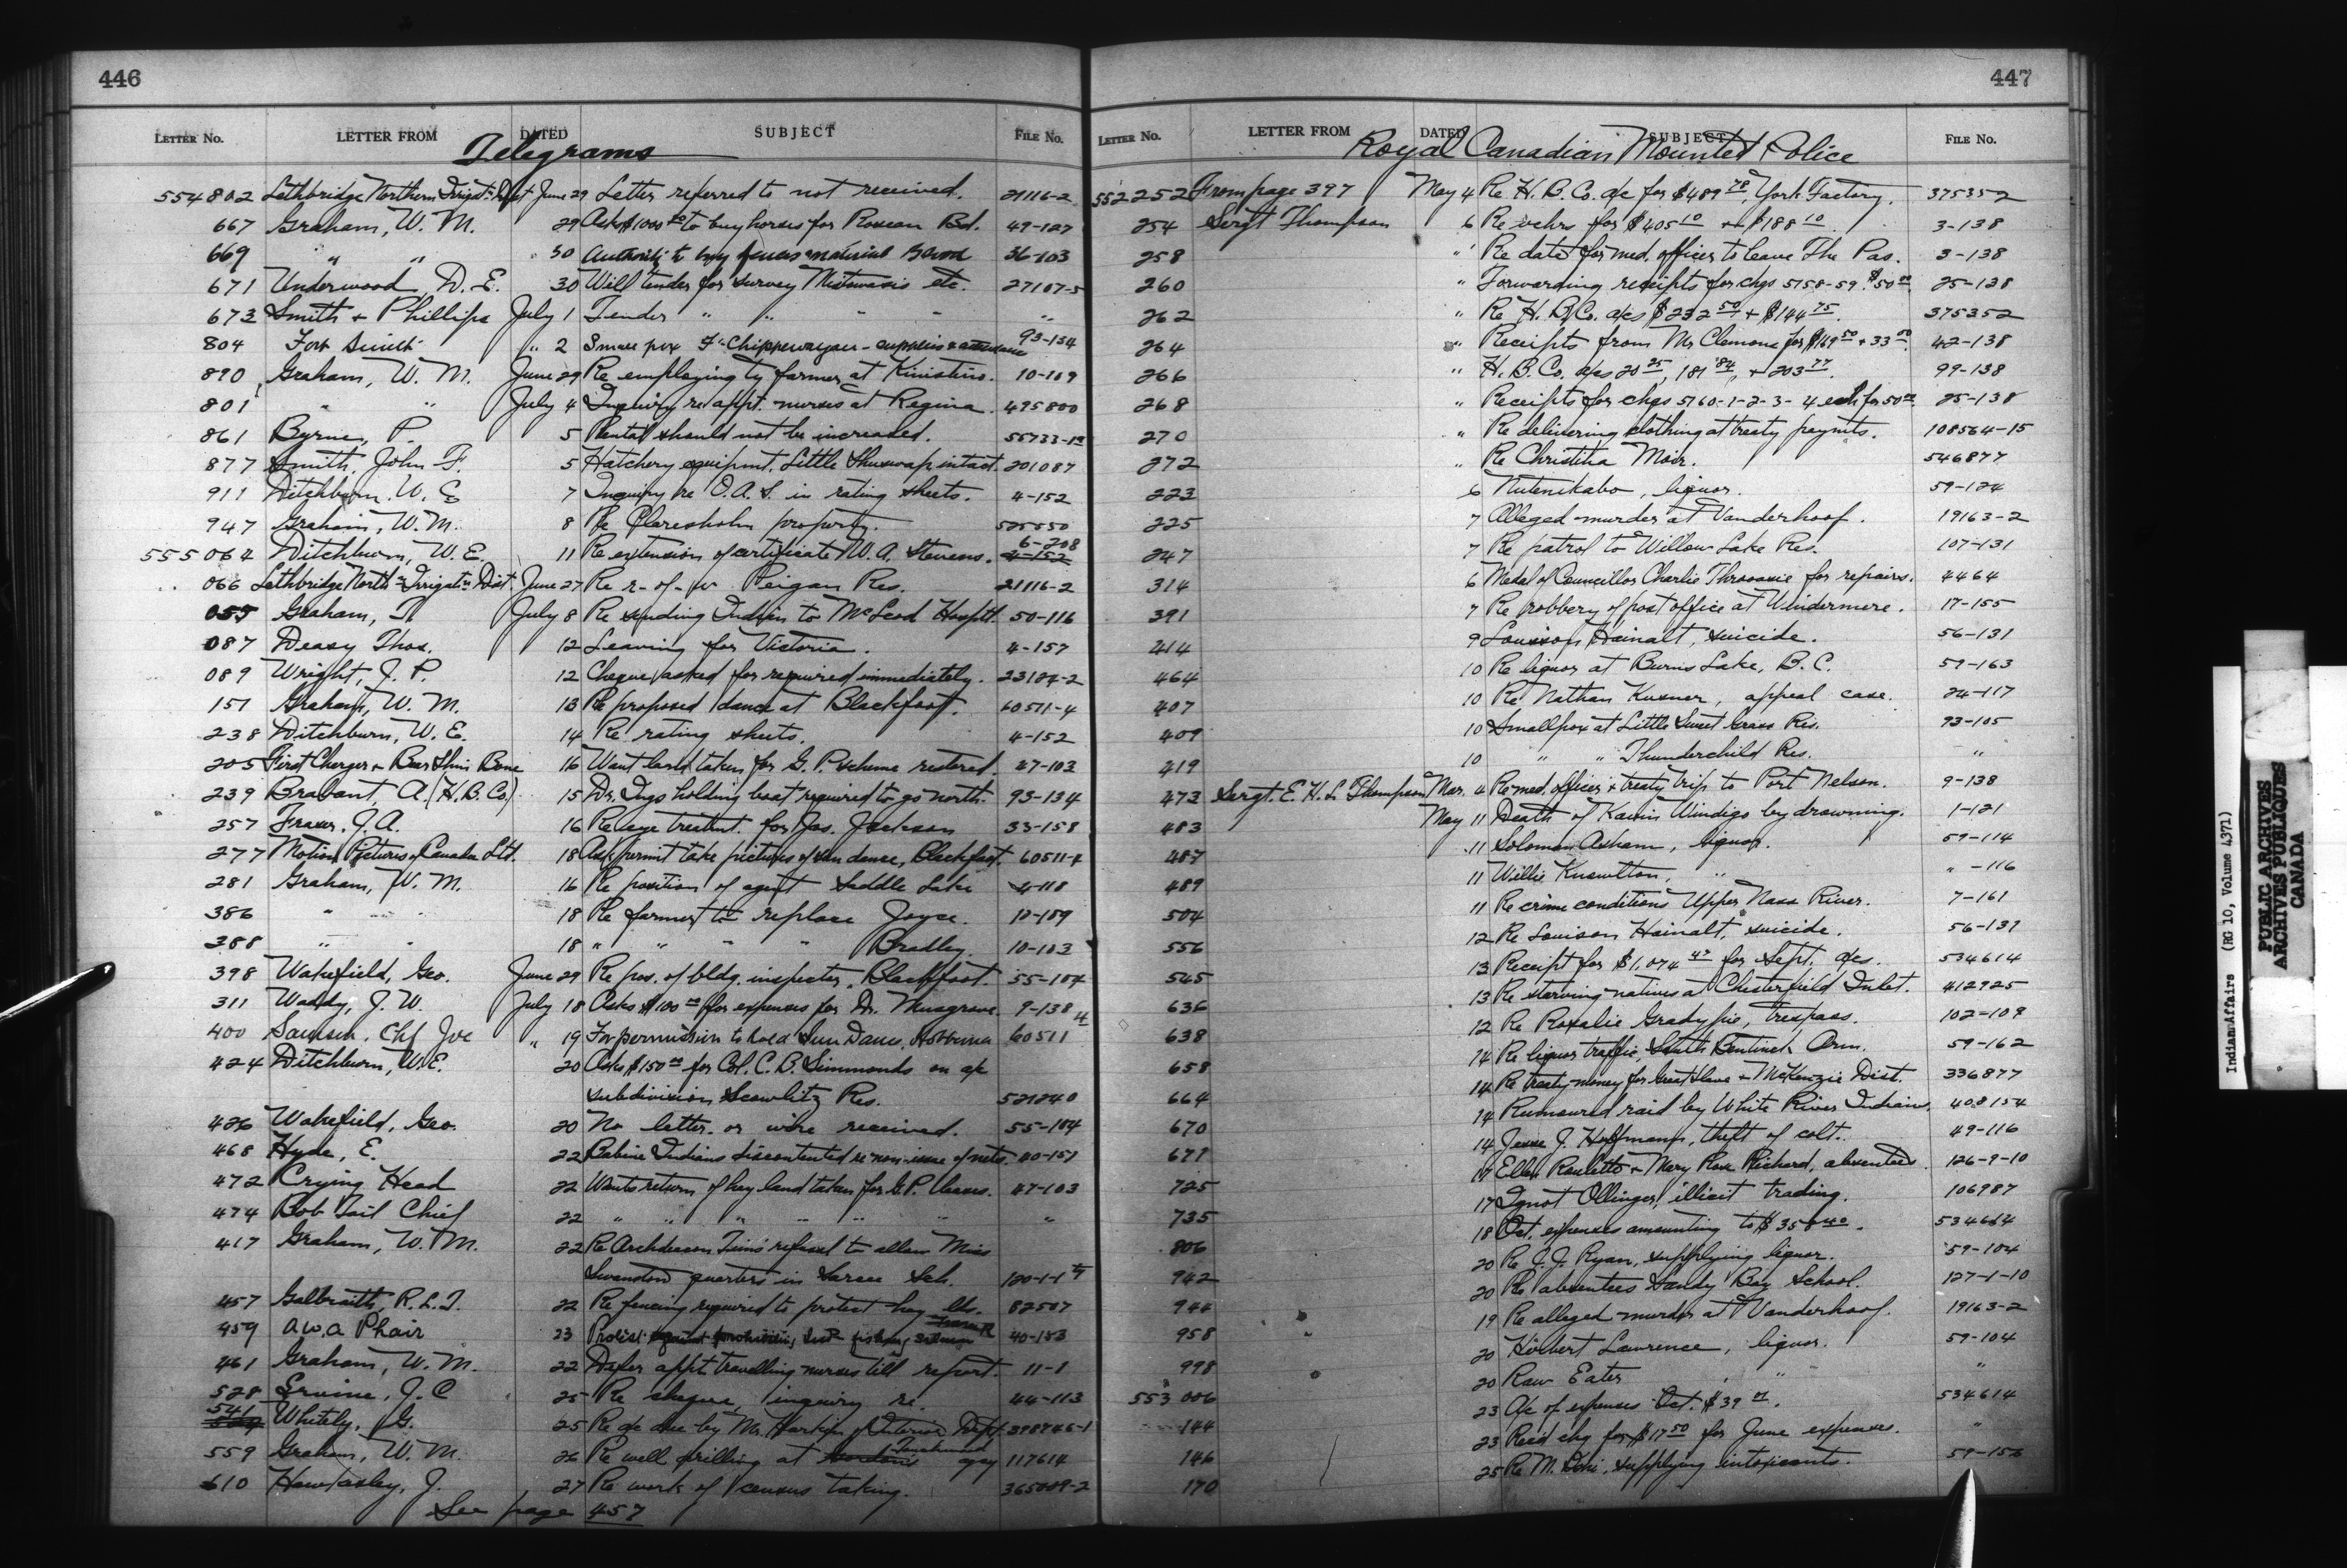 446
LETTER No. LETTER FROM DATED SUBJECT FILE No.
Telegrams
554802 Lethbridge Northern Irrigatn Dist June 29 Letter referred to not received. 21116-2
667 Graham, W. M. 29 Asks $1000 00 to buy horses for Roseau Bd. 49-127
669 " " 30 Authority to buy fences material Blood 36-103
671 Underwood, D. E. 30 Will tender for survey Mistawasis etc. 27107-5
673 Smith & Phillips July 1 Tender " " " " "
804 Fort Smith " 2 Small pox Ft Chippewayan - supplies & attendance 93-134
890 Graham, W. M. June 29 Re employing ty farmer at Kinistino. 10-109
801 " " July 4 Inquiry re appt. nurses at Regina. 495800
861 Byrne, P. 5 Rental should not be increased. 55733-12
877 Smith, John F. 5 Hatchery equipmt. Little Shuswap intact. 201087
911 Ditchburn, W. E. 7 Inquiry re O. A. S. in rating sheets. 4-152
947 Graham, W. M. 8 Re Claresholm property. 525550
555064 Ditchburn, W. E. 11 Re extension of certificate W. A. Stevens. 6-208 4-152
066 Lethbridge North'n Irrigat'n Dist. June 27 Re r-of-w Peigan Res. 21116-2
055 Graham, T. July 8 Re sending Indian to McLeod Hosptl. 50-116
087 Deasy Thos. 12 Leaving for Victoria. 4-157
089 Wright, J. P. 12 Cheque asked for required immediately. 23124-2
151 Graham, W. M. 13 Re proposed dance at Blackfoot. 60511-4
238 Ditchburn, W. E. 14 Re rating sheets. 4-152
205 First Charger & Bear Shin Bone 16 Want land taken for G. P. scheme restored. 47-103
239 Brabant, A. (H. B. Co.) 15 Dr. Ings holding boat required to go north. 93-134
257 Fraser, J. A. 16 Re eye treatmt. for Jas. Jackson 33-158
277 Motion Pictures of Canada Ltd. 18 Ask permit take pictures of sun dance, Blackfoot. 60511-4
281 Graham, W. M. 16 Re position of agent Saddle Lake 4-118
386 " " 18 Re farmer to replace Joyce. 12-109
388 " " 18 " " " " Bradley. 10-103
398 Wakefield, Geo. June 29 Re pos. of bldg. inspector, Blackfoot. 55-104
311 Waddy, J. W. July 18 Asks $100 00 for expenses for Dr. Musgrove. 9-138
400 Samson, Chf Joe " 19 For permission to hold Sun Dance, Hobbema 60511
424 Ditchburn, W. E. 20 Asks $150 00 for Col. C. B. Simmonds on a/c
subdivision Scowlitz Res. 521240
426 Wakefield, Geo. 20 No letter or wire received. 55-104
468 Hyde, E. 22 Babine Indians discontented re non-issue of nets. 40-151
472 Crying Head 22 Wants return of hay land taken for G. P. leases. 47-103
474 Bob Tail Chief 22 " " " " " " "
417 Graham, W. M. 22 Re Archdeacon Tims' refusal to allow Miss
Swanston quarters in Sarcee Sch. 120-1-1
457 Galbraith, R. L. T. 22 Re fencing required to protect hay lds. 82507
459 A. W. A Phair 23 Protest against prohibiting Inds fishing salmon 40-153
461 Graham, W. M. 22 Defer appt travelling nurses till report. 11-1
528 Ervine, J. C 25 Re cheque, inquiry re. 44-113
541 Whitely, G. 25 Re a/c due by Mr. Harkin of Interior Dept. 398746-1
559 Graham, W. M. 26 Re well drilling at agcy 117614
610 Hawksley, J. 27 Re work of census taking. 365009-2
See page 457
447
LETTER No. LETTER FROM DATED SUBJECT FILE No.
Royal Canadian Mounted Police
552252 From page 397 May 4 Re H. B. Co. a/c for $489 78, York Factory. 375352
254 Sergt Thompson 6 Re vchrs for $405 10 + $188 10 3-138
258 " Re date for med. officer to leave The Pas. 3-138
260 " Forwarding receipts for chqs 5158-59. $50 00. 25-138
262 " Re H. B. Co. a/cs $232 50 + $144 75. 375352
264 " Receipts from Mr Clemons for $169 50 + 33 00. 42-138
266 " H. B. Co. a/cs 20 25, 181 84, + 203 77. 99-138
268 " Receipts for chqs 5160-1-2-3- 4 each for 50 00. 25-138
270 " Re delivering clothing at treaty paymts. 108564-15
272 " Re Christina Moir. 546877
223 6 Nutenikabo, liquor. 59-124
225 7 Alleged murder at Vanderhoof. 19163-2
247 7 Re patrol to Willow Lake Res. 107-131
314 6 Medal of Councillor Charlie Throoasie for repairs. 4464
391 7 Re robbery of post office at Windermere. 17-155
414 9 Louison Hainalt, suicide. 56-131
464 10 Re liquor at Burns Lake, B. C. 59-163
407 10 Re Nathan Kusner, appeal case. 24-117
409 10 Smallpox at Little Sweet Grass Res. 93-105
419 10 " " Thunderchild Res. "
473 Sergt. E. H. L. Thompson Mar. 4 Re med. officer & treaty trip to Port Nelson. 9-138
483 May 11 Death of Kanin Windigo by drowning. 1-121
487 11 Solomon Asham, liquor. 59-114
489 11 Willie Knowlton, " " -116
504 11 Re crime conditions Upper Nass River. 7-161
556 12 Re Louison Hainalt, suicide. 56-131
565 13 Receipt for $1,074 47 for Sept. a/cs. 534614
636 13 Re starving natives at Chesterfield Inlet. 412925
638 12 Re Rosalie Gradypie, trespass. 102-109
658 14 Re liquor traffic, South Bentinck Arm. 59-162
664 14 Re treaty money for Great Slave & McKenzie Dist. 336877
670 14 Rumoured raid by White River Indians. 408154
677 14 Jesse J. Hoffmann, theft of colt. 49-116
725 17 Ellen Roulette & Mary Rose Richard, absentees. 126-9-10
735 17 Ignot Ollinger, illicit trading. 106987
806 18 Oct. expenses amounting to $358 40. 534614
942 20 Re J. J. Ryan, supplying liquor. 59-104
944 20 Re absentees Sandy Bay School. 127-1-10
958 19 Re alleged murder at Vanderhoof. 19163-2
998 20 Herbert Lawrence, liquor. 59-104
553006 20 Raw Eater " "
144 23 A/c of expenses Oct. $39 534614
146 23 Rec'd chq for $17 50 for June expenses. "
170 25 Re M. supplying intoxicants. 59-156
Indian Affairs (RG 10, Volume 4371)
PUBLIC ARCHIVES
ARCHIVES PUBLIQUES
CANADA